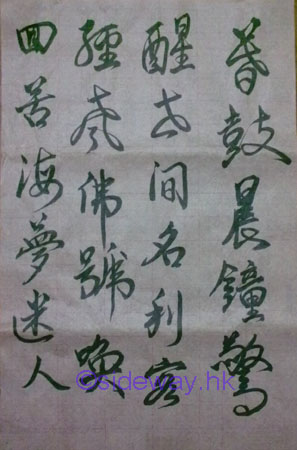 暮鼓晨鐘驚
醒世間名利客
經聲佛號喚
回苦海夢迷人
©sideway.hk